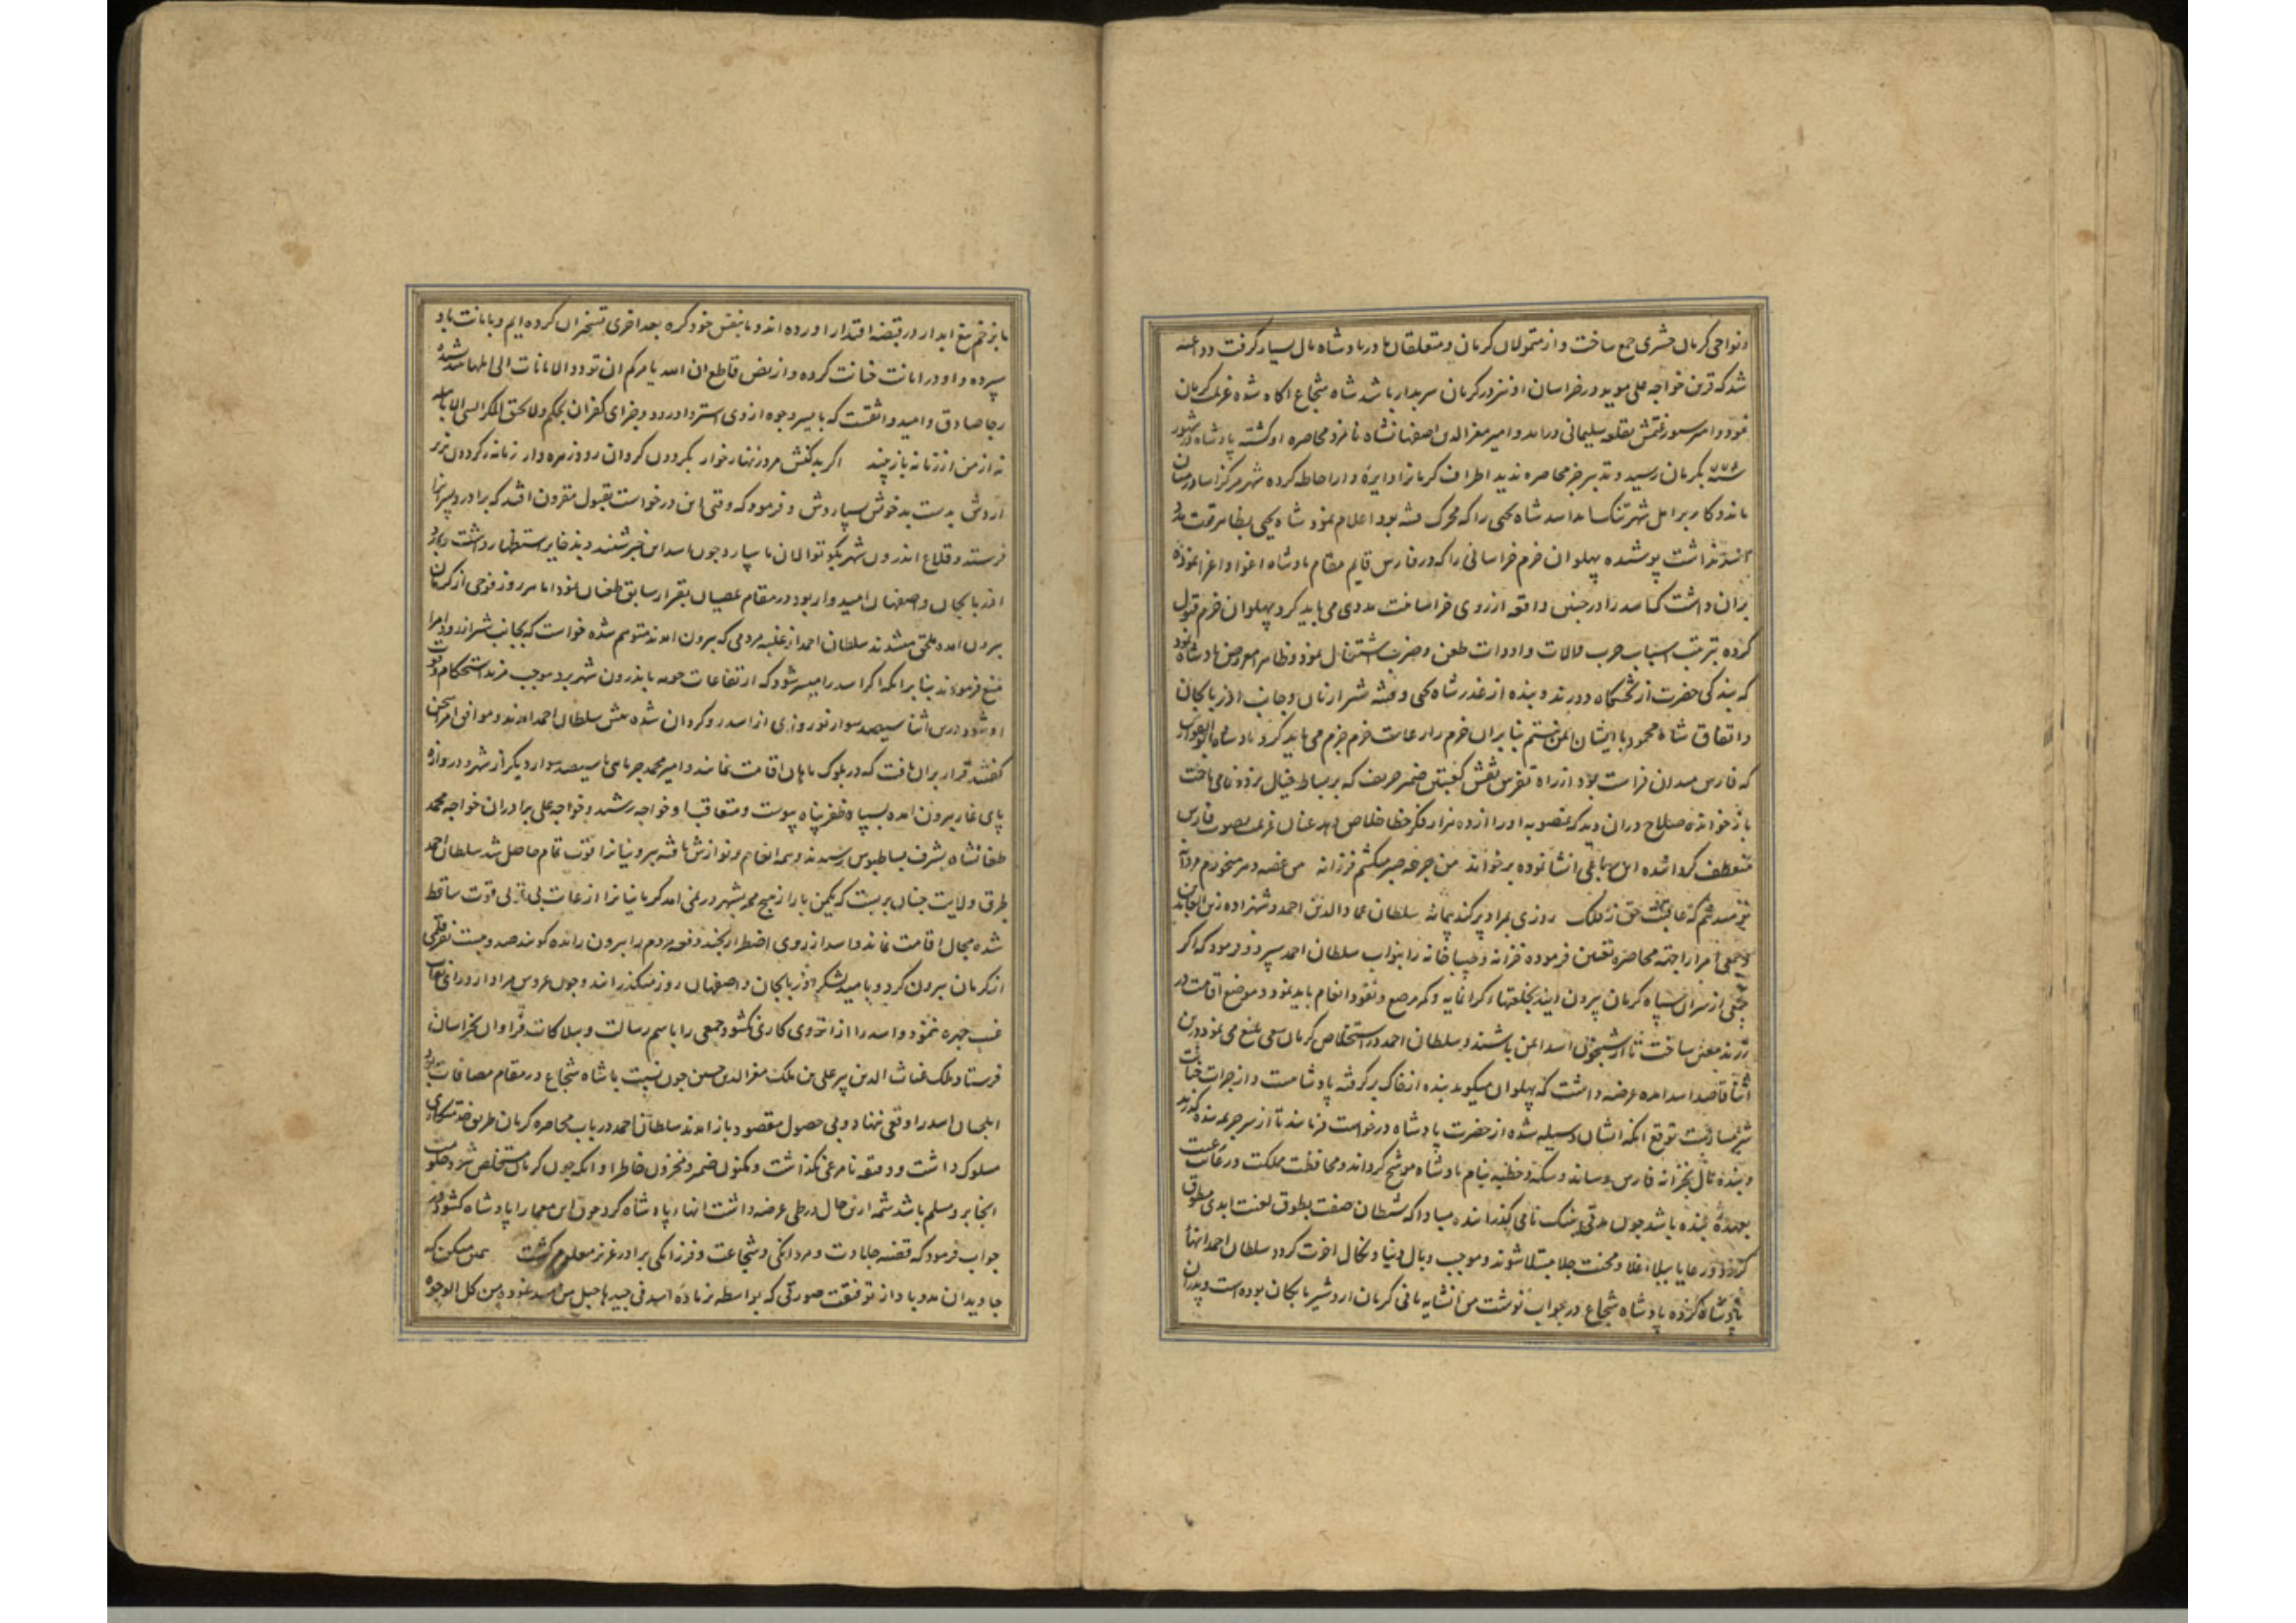 و نواحی کرمان حشری جمع ساخت و از متمولان کرمان و متعلقان پادشاه مال بسیار گرفت و داعیه
شد که قرین خواجه علی موید در خراسان او نیز در کرمان سربدار باشد شاه شجاع آکاه شده عزیمت کرمان
نمود و امیر سیورغتمش بقلعه سلیمانی درامد و امیر معزالدین اصفهانشاه نامزد محاصره او کشته پادشاه در شهور
بکرمان رسید و تدبیر جز محاصره ندید اطراف کرمانرا دایره وار احاطه کرده شهر مرکز اسا در میان
ماند و کار بر اهل شهر تنک اسد شاه یحیی را که محرک فتنه بود اعلام نمود شاه یحیی بظاهر
پوشیده پهلوان خرم خراسانی را که در فارس قایم مقام پادشاه اغوا و اغرا نموده
بران داشت که اسد را در چنین واقعه از روی خراسانیت مددی می باید کرد پهلوان خرم قبول
کرده بترتیب اسباب حرب والات و ادوات طعن و ضرب اشتغال نمود و ظاهرا معروض پادشاه نمود
که بندکی حضرت از تختکاه دورند و بنده از غدر شاه یحیی و فتنه شیراز نان و جانب اذربایجان
و اتفاق شاه محمود با ایشان ایمن نیستم بنابران خرم را رعایت حزم می باید کرد پادشاه
که فارس میدان فراست بود از راه تفرس نقش کعبتین ضمیر حریف که بر بساط خیال نرد دغا می باخت
باز خوانده صلاح دران دید که منصوبه او را از ده هزار فکر خطا خلاص دهد عنان عزیمت بصوب فارس
منعطف کرد اشده این رباعی انشا نموده برخواند من جرعه صبر میکشم فرزانه من غصه دهر میخورم مردانه
نومید نیم که عاقبت حق ز فلک روزی بمراد پر کند پیمانه سلطان عماد الدین احمد و شهزاده زین العابدین
و جمعی امرا را جهة محاصره تعیین فرموده خزانه و جیباخانه را بنواب سلطان احمد سپرد و فرمود که اکر
جمعی از سران سپاه کرمان بیرون ایند بخلعتها کرانمایه و کمر مرصع و نقود انعام باید نمود و موضع اقامت در
زرند معین ساخت تا از شبیخون اسد ایمن باشند و سلطان احمد در استخلاص کرمان سعی بلیغ می نمود درین
اثنا قاصد اسد امده عرضه داشت که پهلوان میکوید بنده از خاک بر گرفته پادشاهست و از جرات جنایت
شرمسارست توقع انکه ایشان وسیله شده از حضرت پادشاه درخواست فرمایند تا از سر جریمه بنده کذرد
و بنده مال بخزانه فارس رساند و سکه و خطبه بنام پادشاه موشح کرداند و محافظت مملکت و رعایت رعیت
بعهده بنده باشد چون مدتی بنیک نامی کذرانیده مبادا که شیطان صفت بطوق لعنت ابدی مطوق
کردد و رعایا ببلاء غلا و محنت جلا مبتلا شوند و موجب وبال دنیا و نکال اخرت کردد سلطان احمد انها
پادشاه کرده پادشاه شجاع در جواب نوشت من انشایه بانی کرمان اردشیر بابکان بوده است و پدران
ما بزخم تیغ ابدار در قبضه اقتدار اورده اند و ما بنفس خود کره بعد اخری تسخیر ان کرده ایم و بامانت باو
سپرده و او در امانت خیانت کرده و از نص قاطع ان الله یامرکم ان تودوا الامانات الی اهلها
رجا صادق و امید واثقست که بایسر وجوه از وی استرداد رود و جزای کفران بحکم ولا یحیق المکر السیئ الا باهله
نه از من از زمانه باز بیند اکر بد کنش مرد زنهار خوار بکردون کردان رود زهره وار زمانه ز کردون بزیر
اردش بدست بد خویش بسپاردش و فرمود که وقتی این درخواست بقبول مقرون افتد که برادر و پسر را
فرستد و قلاع اندرون شهر بکوتوالان ما سپارد چون اسد این خبر شنید و بذخایر استظهار داشت
اذربایجان و اصفهان امیدوار بود در مقام عصیان بقرار سابق طغیان نمود اما هر روز فوجی از کرمان
بیرون امده ملحق میشدند سلطان احمد از غلبه مردمی که بیرون امدند متوهم شده خواست که بجانب شیراز رود امرا
منع فرمودند بنا بر انکه اکر اسد را میسر شود که ارتفاعات حومه باندرون شهر برد موجب مزید استحکام
او شود درین اثنا سیصد سوار نوروزی از اسد رو کردان شده پیش سلطان احمد امدند و موافق امرا سخن
کفتند قرار بران یافت که در بلوک ماهان اقامت نمایند و امیر محمد جرمایی با سیصد سوار دیکر از شهر و دروازه
پای غار بیرون امده بسپاه ظفر پناه پیوست و متعاقب او خواجه رشید و خواجه علی برادران خواجه محمد
طغانشاه بشرف بساطبوس رسیدند و همه انعام و نوازش یافته بیرونیانرا قوت تمام حاصل شد سلطان احمد
طرق ولایت چنان بربست که یکمن بار از هیچ ممر بشهر در نمی امد کرمانیانرا از غایت بی قوتی قوت ساقط
شده مجال اقامت نماند و اسد از روی اضطرار بچند دفعه مردم را بیرون رانده کویند صد و بیست نفر قلمی
از کرمان بیرون کرد و بامید لشکر اذربایجان و اصفهان روز میکذراند و چون عروس مراد از ورای نقاب
غیب چهره ننمود و اسد را از انروی کاری نکشود جمعی را باسم رسالت و بیلاکات فراوان بخراسان
فرستاد و ملک غیاث الدین پیر علی بن ملک معز الدین حسین چون نسبت با شاه شجاع در مقام مصافات بود
ایلچیان اسد را وقعی ننهاد و بی حصول مقصود باز امدند سلطان احمد در باب محاصره کرمان طریق خدمتکاری
مسلوک داشت و دقیقه نامرعی نکذاشت و مکنون ضمیر و مخزون خاطر او انکه چون کرمان مستخلص شود حکومت
انجا برو مسلم باشد شمه ازین حال در طی عرضه داشت انهاء پادشاه کرد چون این معما را پادشاه کشود در
جواب فرمود که قضیه جلادت و مردانکی و شجاعت و فرزانکی برادر عزیز معلوم کشت همین میکن که
جاویدان مدد باد از توفیقت صورتی که بواسطه نزماده اسد فی جیدها حبل من مسد نمود و من کل الوجوه